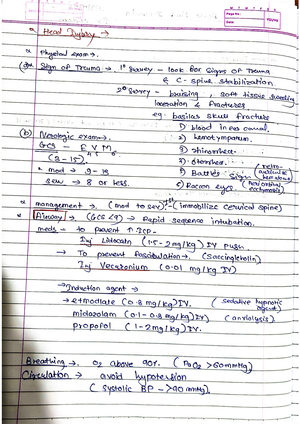 Page No.
Date
YOUVA
* Head Injury →
* physical exam →.
(a) Sign of Trauma → 1° survey - look for signs of Trauma
& C-spine stabilization
2° Survey - bruising, soft tissue bleeding
laceration & fractures
eg. basilar skull fracture
1) blood in ear canal.
(b) Neurologic exam →.
2) hemotympanum.
GCS - E V M
3) rhinorrhea.
(3-15) 4 5 6
4) otorrhea.
* mod → 9-13
5) Battle's sign (retro-auricular hematoma)
sev → 8 or less.
6) Racoon eyes. (periorbital ecchymosis)
* management →. (mod to sev) (immobilize cervical spine)
* Airway →. (GCS <9) → Rapid sequence intubation.
meds. - to prevent ↑ ICP -
Inj Lidocain (1.5-2mg/kg) IV push.
→ To prevent fasciculation. (succinylcholin)
Inj Vecuronium (0.01 mg/kg IV)
→ Induction agent →
→ etomidate (0.3 mg/kg) IV. (sedative hypnotic agent)
midazolam (0.1-0.3mg/kg) IV) (anxiolysis).
propofol (1-2mg/kg) IV.
Breathing →. O2 above 90%. (PaO2 >60mmHg)
Circulation → avoid hypotension
(systolic BP - >90 mmHg).